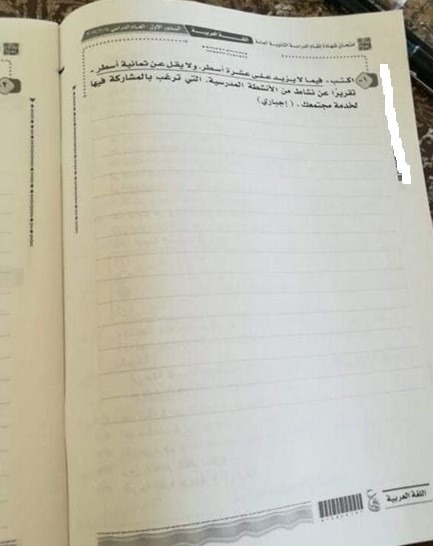 امتحان شهادة إتمام الدراسة الثانوية العامة
اللغة العربية
الدور الأول - العام الدراسي
١- اكتب - فيما لا يزيد على عشرة أسطر، ولا يقل عن ثمانية أسطر -
تقريرًا عن نشاط من الأنشطة المدرسية، التي ترغب بالمشاركة فيها
لخدمة مجتمعك. (إجباري)
٢
اللغة العربية